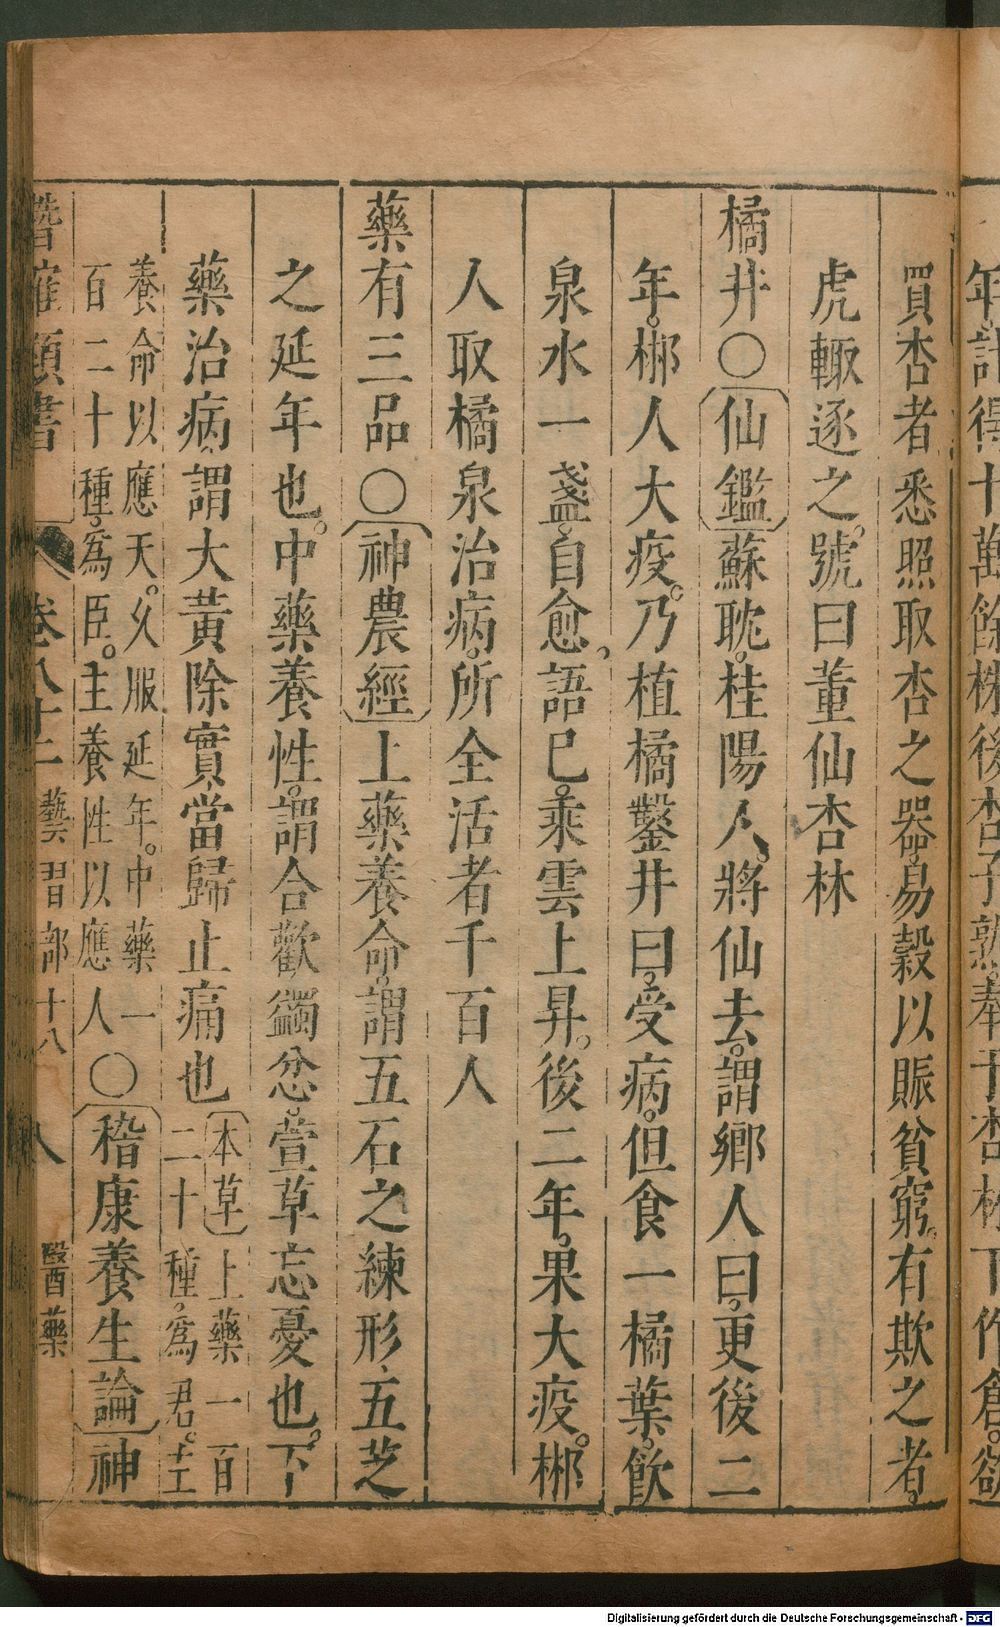 年計得十萬餘株後杏子熟奉于杏林下作倉欲
買杏者悉照取杏之器易穀以賑貧窮有欺之者
虎輙逐之號曰董仙杏林
橘井○仙鑑蘇耽桂陽人將仙去謂鄉人曰更後二
年郴人大疫乃植橘鑿井曰受病但食一橘葉飲
泉水一盞自愈語已乘雲上昇後二年果大疫郴
人取橘泉治病所全活者千百人
藥有三品○神農經上藥養命謂五石之練形五芝
之延年也中藥養性謂合歡蠲忿萱草忘憂也下
藥治病謂大黃除實當歸止痛也
本草上藥一百
二十種爲君主
養命以應天久服延年中藥一
百二十種爲臣主養性以應人○
嵇康養生論神
類書 卷八十二 藝習部十八 八 醫藥
Digitalisierung gefördert durch die Deutsche Forschungsgemeinschaft - DFG